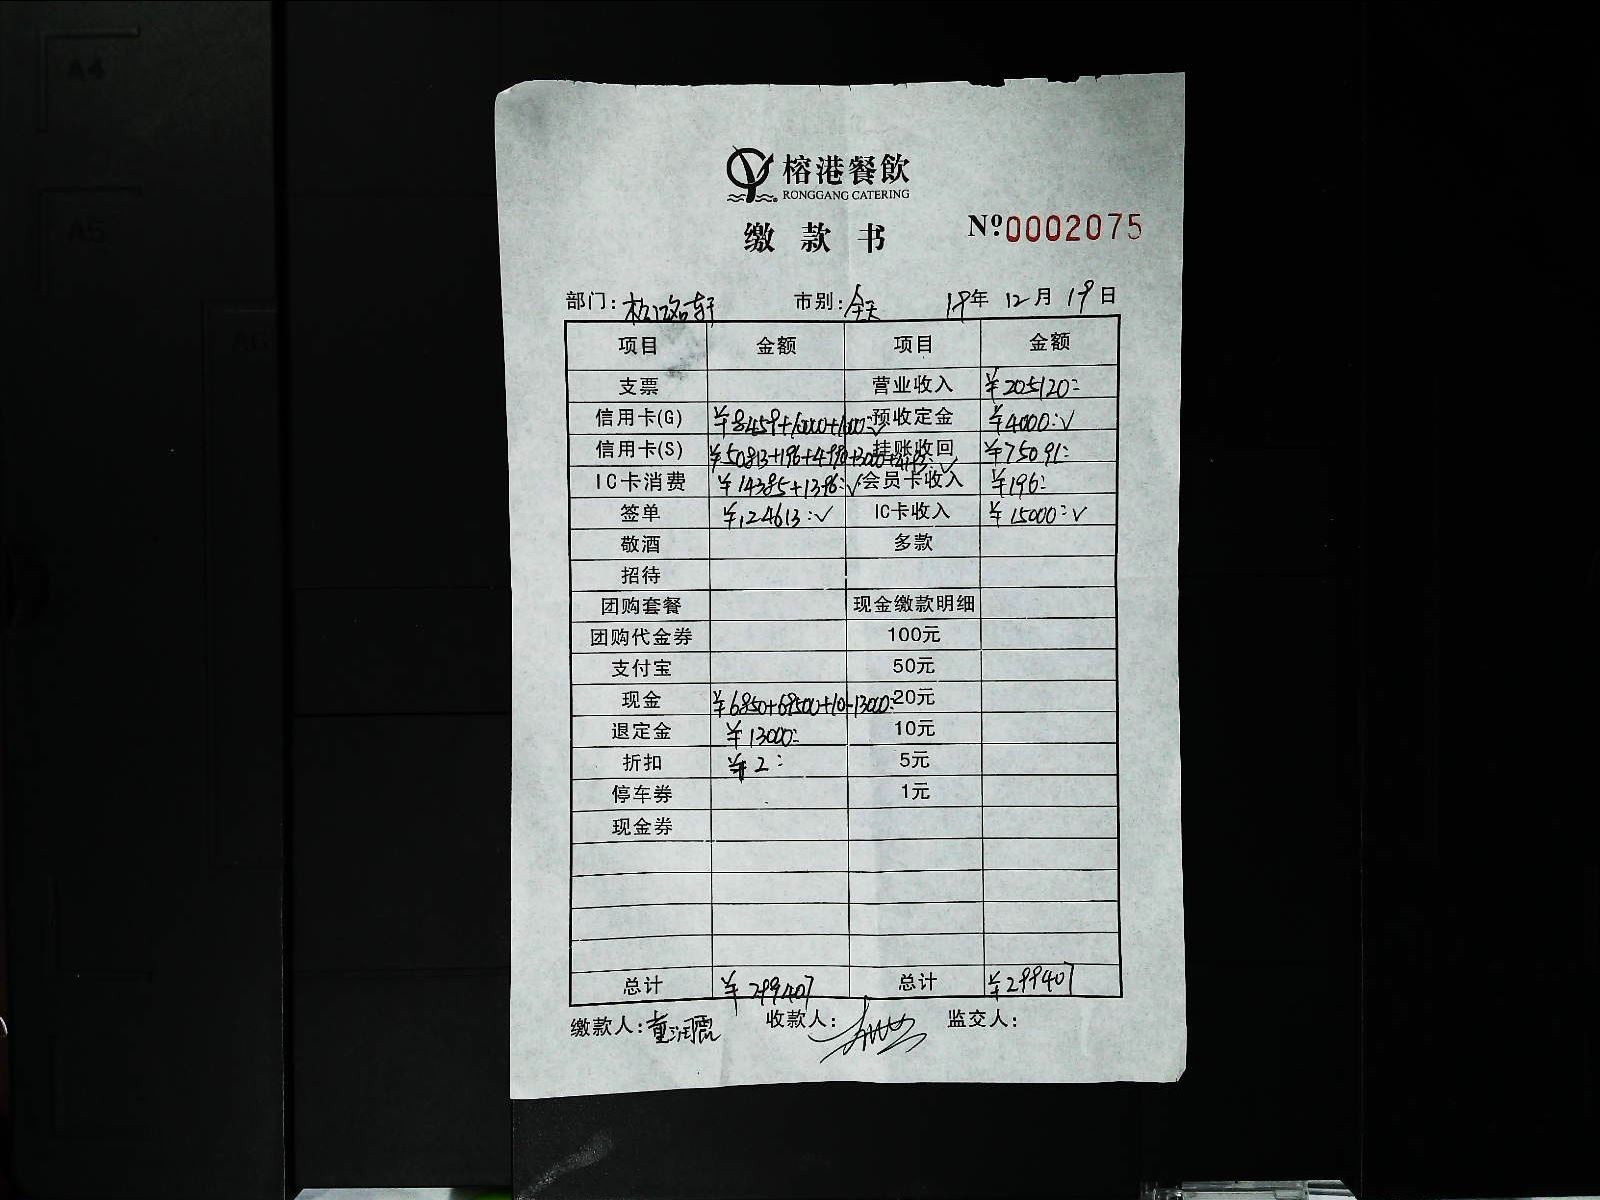 A4
A5
榕港餐飲
RONGGANG CATERING
缴款书 №0002075
部门: 市别:全天 19年 12月 19日
项目 金额 项目 金额
支票 营业收入 ¥205120=
信用卡(G) 预收定金 ¥4000=✓
信用卡(S) 挂账收回 ¥75091=
IC卡消费 ¥14385+1396=✓ 会员卡收入 ¥196=
签单 ¥124613=✓ IC卡收入 ¥15000=✓
敬酒 多款
招待
团购套餐 现金缴款明细
团购代金券 100元
支付宝 50元
现金 20元
退定金 ¥13000= 10元
折扣 ¥2= 5元
停车券 1元
现金券
总计 ¥299407 总计 ¥299407
缴款人: 收款人: 监交人: